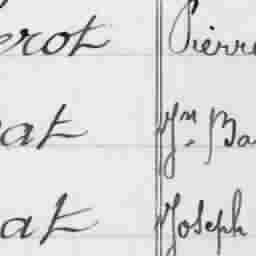 erot Pierre
at Jn Ba
at Joseph